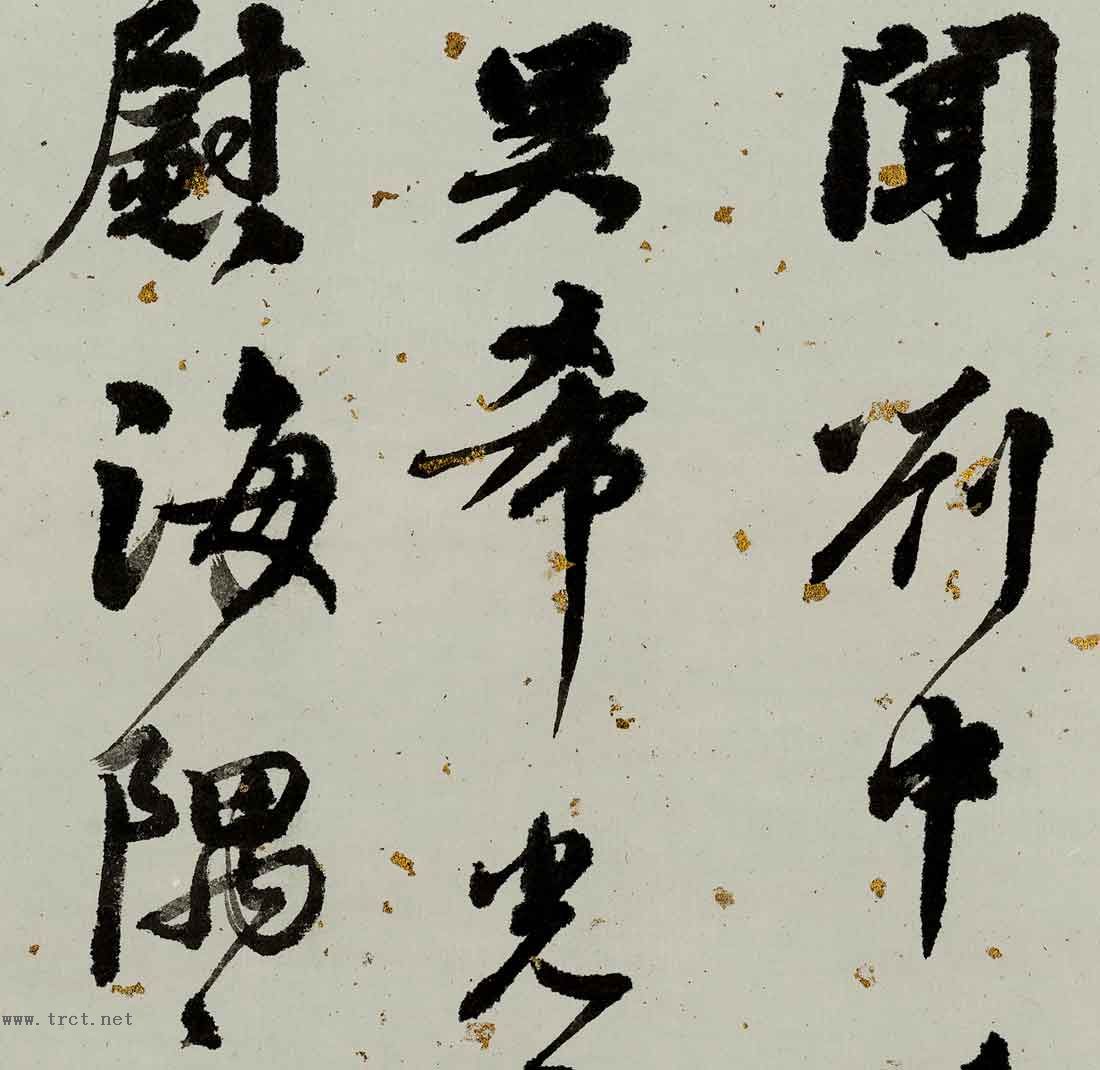 聞中
吳希光
慰海隅
www.trct.net